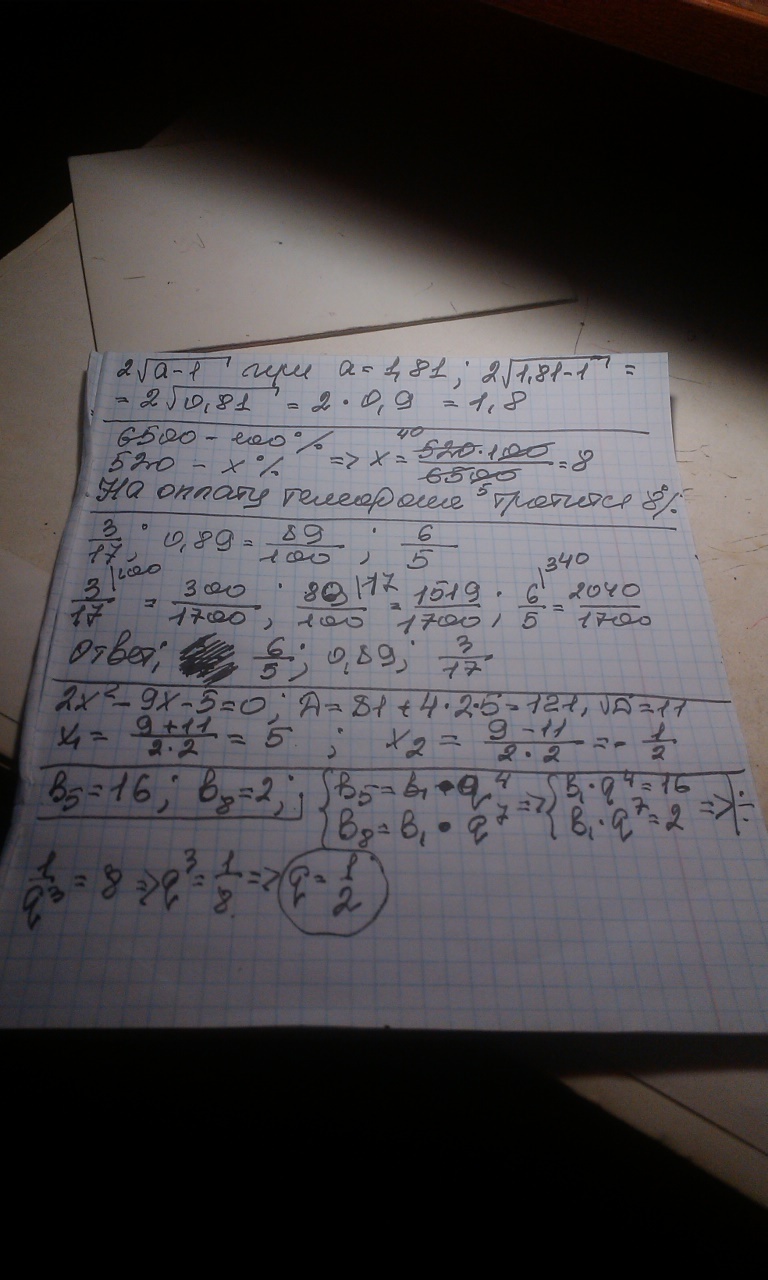 2√a-1 при a=1,81; 2√1,81-1 =
= 2√0,81 = 2·0,9 = 1,8
6500 - 100%
520 - x% => x = 40 520·100/6500 5 = 8
На оплату телефона тратится 8%
3/17; 0,89 = 89/100; 6/5
3/17 |100 = 300/1700; 89/100 |17 = 1519/1700; 6/5 |340 = 2040/1700
Ответ; 6/5; 0,89; 3/17
2x²-9x-5=0; D=81+4·2·5=121, √D=11
x₁ = 9+11/2·2 = 5; x₂ = 9-11/2·2 = -1/2
b₅=16; b₈=2; { b₅=b₁·q⁴ b₈=b₁·q⁷ => { b₁·q⁴=16 b₁·q⁷=2 => |÷
1/q³ = 8 => q³ = 1/8 => q = 1/2